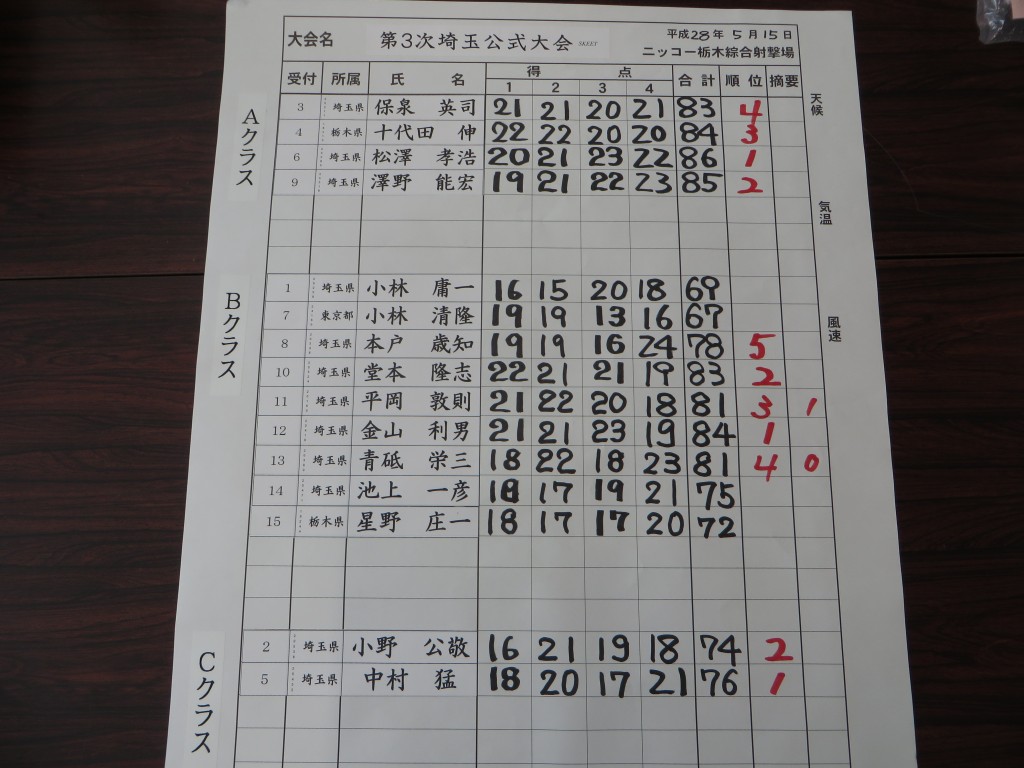 大会名 第3次埼玉公式大会 SKEET 平成28年 5月15日
ニッコー栃木綜合射撃場
受付 所属 氏 名 得 点 合計 順位 摘要
1 2 3 4
Aクラス
3 埼玉県 保泉 英司 21 21 20 21 83 4
4 栃木県 十代田 伸 22 22 20 20 84 3
6 埼玉県 松澤 孝浩 20 21 23 22 86 1
9 埼玉県 澤野 能宏 19 21 22 23 85 2
天候
気温
風速
Bクラス
1 埼玉県 小林 庸一 16 15 20 18 69
7 東京都 小林 清隆 19 19 13 16 67
8 埼玉県 本戸 歳知 19 19 16 24 78 5
10 埼玉県 堂本 隆志 22 21 21 19 83 2
11 埼玉県 平岡 敦則 21 22 20 18 81 3 1
12 埼玉県 金山 利男 21 21 23 19 84 1
13 埼玉県 青砥 栄三 18 22 18 23 81 4 0
14 埼玉県 池上 一彦 18 17 19 21 75
15 栃木県 星野 庄一 18 17 17 20 72
Cクラス
2 埼玉県 小野 公敬 16 21 19 18 74 2
5 埼玉県 中村 猛 18 20 17 21 76 1